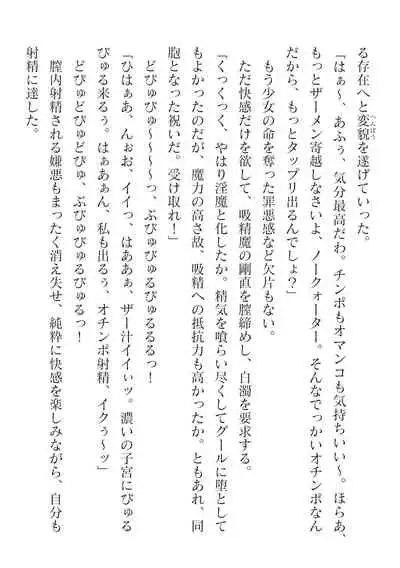 る存在へと変貌を遂げていった。
「はぁ～、あふぅ、気分最高だわ。チンポもオマンコも気持ちいい～。ほらあ、
もっとザーメン寄越しなさいよ、ノークォーター。そんなでっかいオチンポなん
だから、もっとタップリ出るんでしょ？」
もう少女の命を奪った罪悪感など欠片もない。
ただ快感だけを欲して、吸精魔の剛直を膣締めし、白濁を要求する。
「くっくっく、やはり淫魔と化したか。精気を喰らい尽くしてグールに堕として
もよかったのだが、魔力の高さ故、吸精への抵抗力も高かったか。ともあれ、同
胞となった祝いだ。受け取れ！」
どびゅびゅ～～～～っ、ぶびゅゅるびゅるるるっ！
「ひはぁあ、んぉお、イイっ、はああぁ、ザー汁イイィッ。濃いの子宮にびゅる
びゅる来るぅ。はぁあぁん、私も出るぅ、オチンポ射精、イクぅ～ッ」
どびゅどびゅどびゅ、ぶびゅびゅるびゅるっ！
膣内射精される嫌悪もまったく消え失せ、純粋に快感を楽しみながら、自分も
射精に達した。